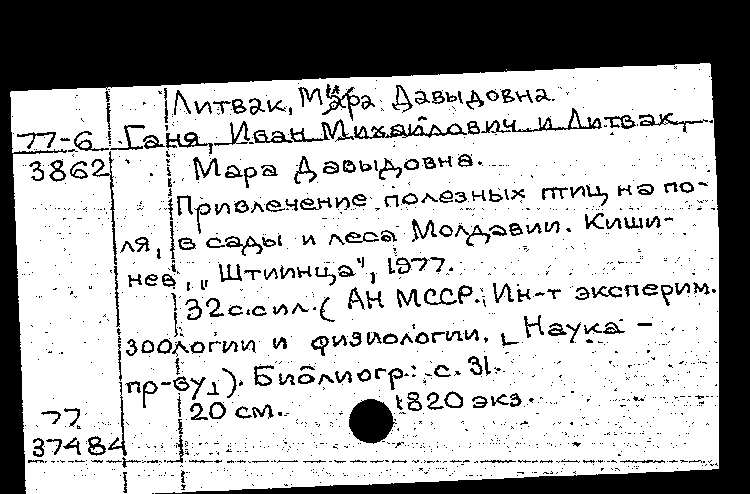 Литвак, Мара Давыдовна
77-6 Ганя, Иван Михайлович и Литвак,
3862 Мара Давыдовна.
Привлечение полезных птиц на по-
ля, в сады и леса Молдавии. Киши-
нев, „Штиинца", 1977.
32 с. с ил. ( АН МССР. Ин-т эксперим.
зоологии и физиологии. [Наука -
пр-ву]). Библиогр.: с. 31.
77 20 см. 1820 экз.
37484